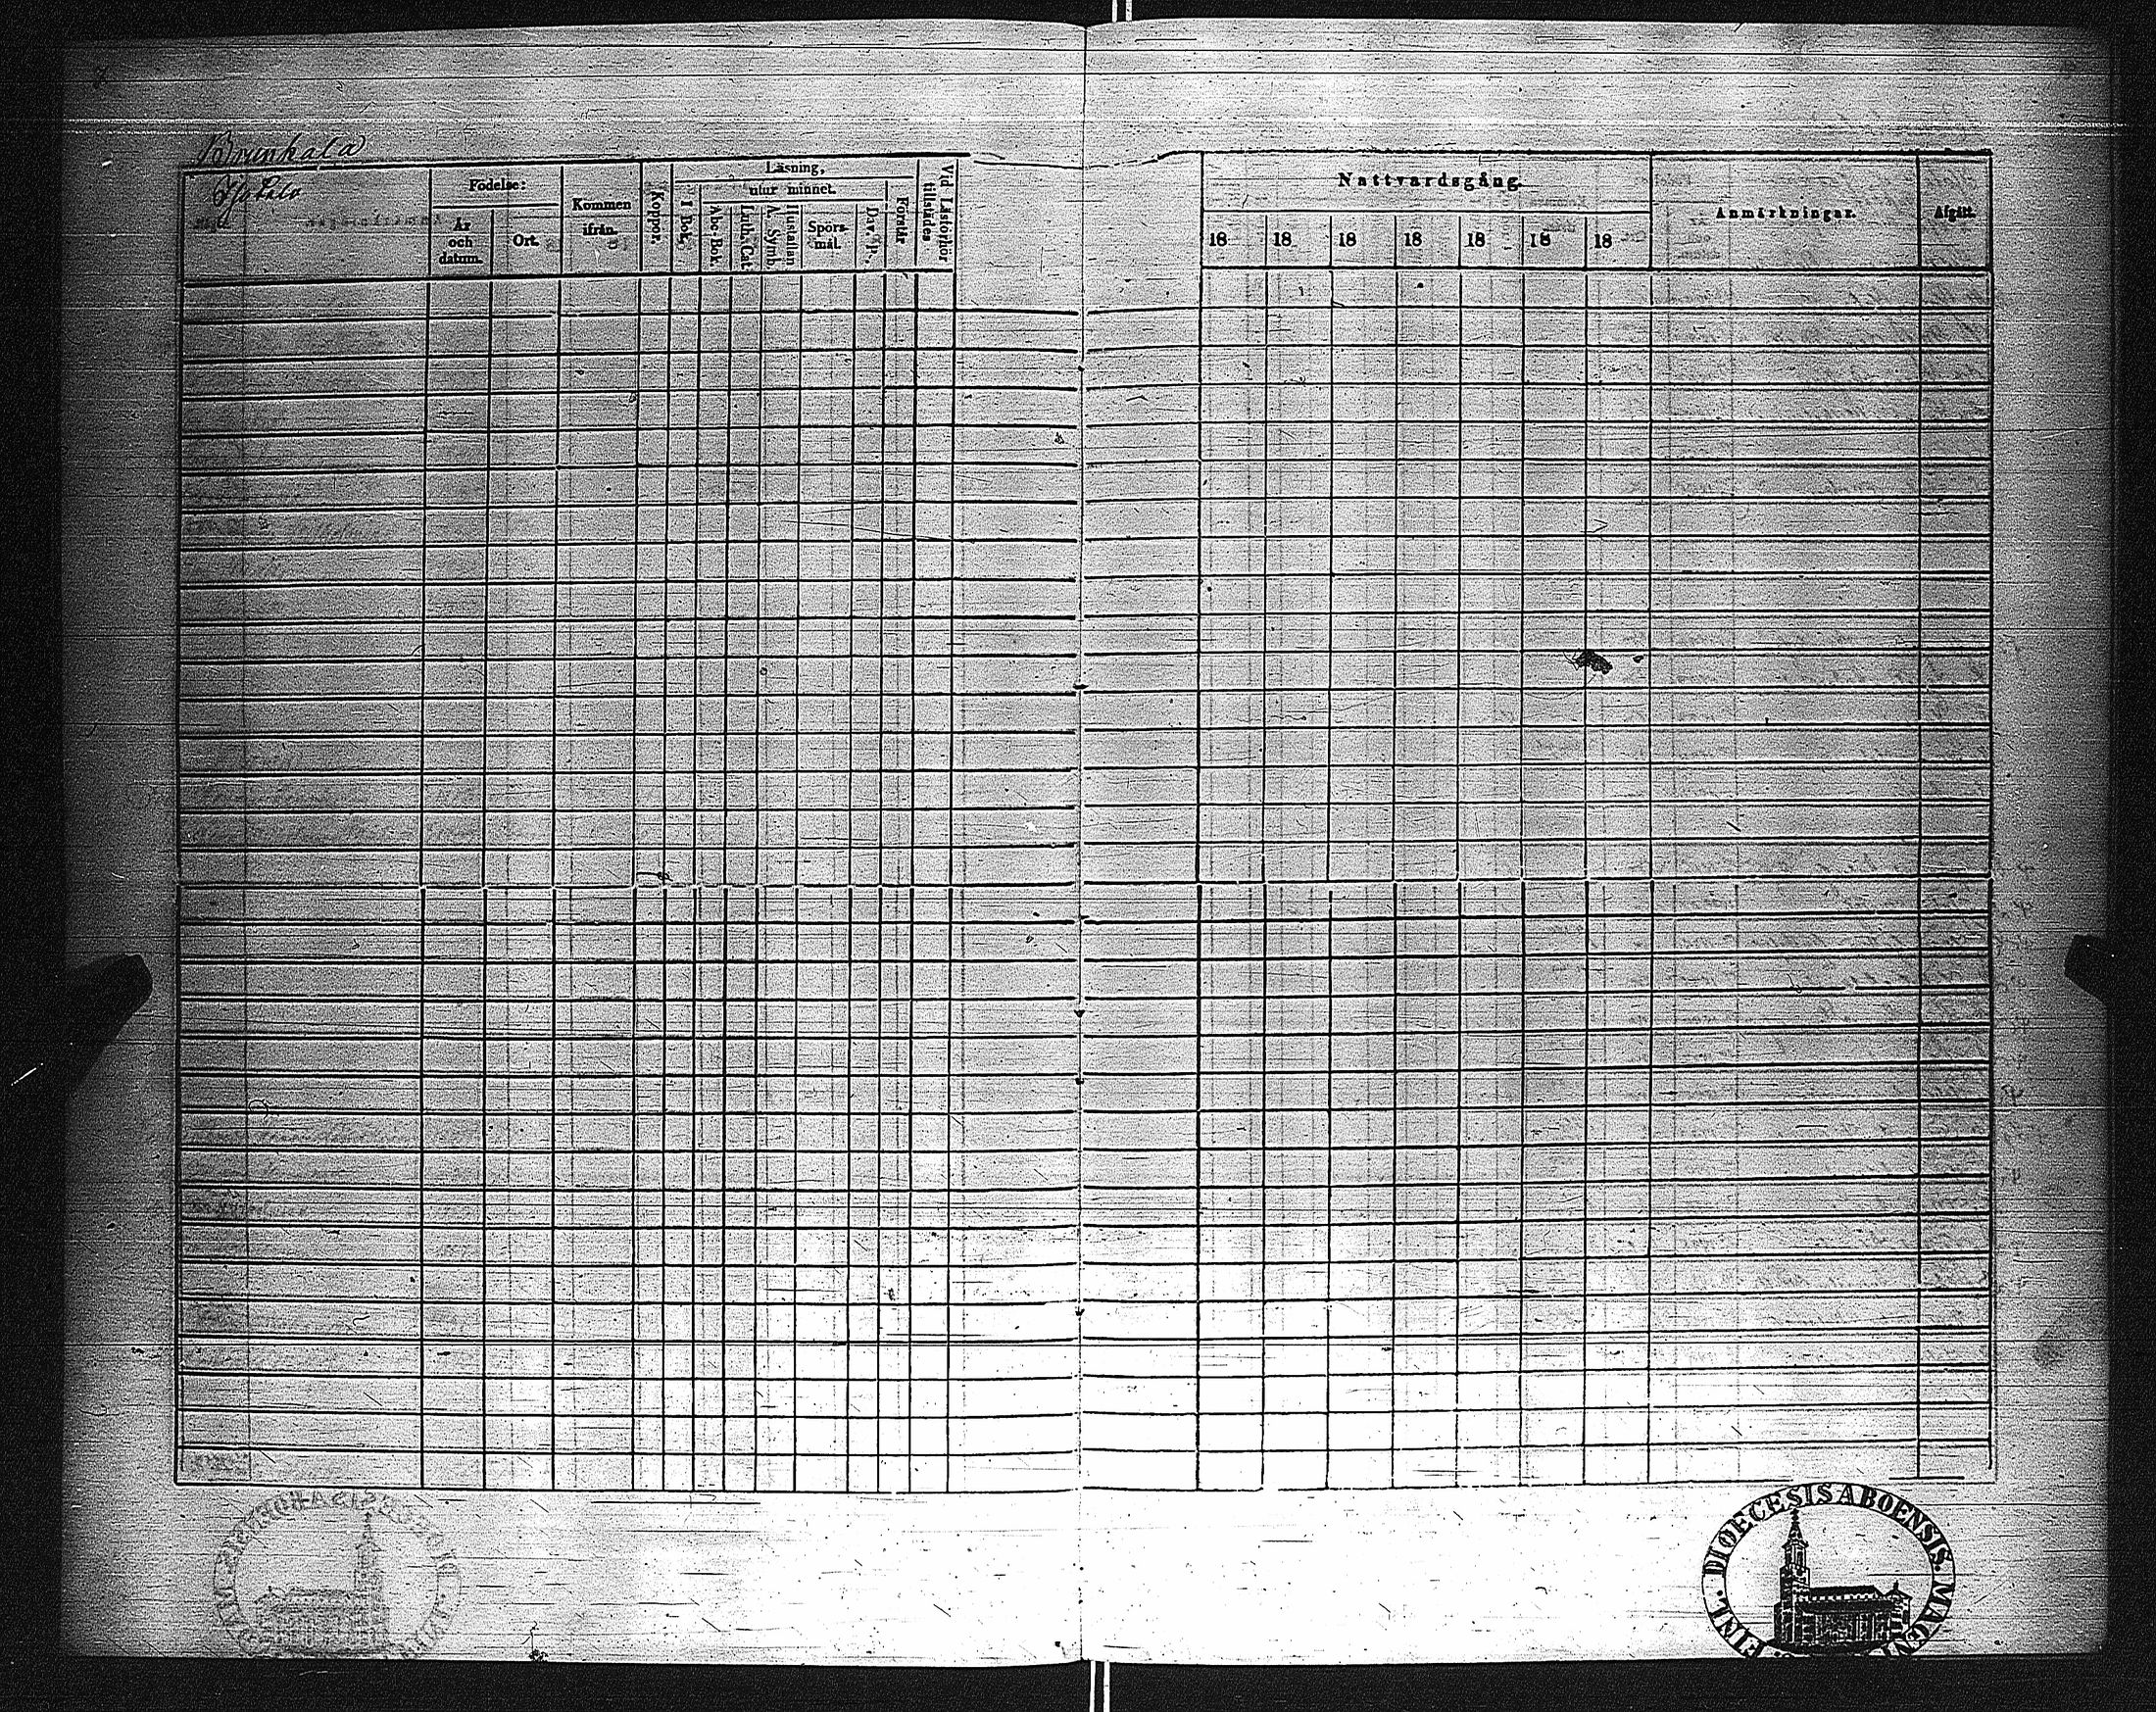 Brunkala
Födelse:
År och datum.
Ort.
Kommen ifrån.
Koppor.
Läsning,
utur minnet.
I Bok.
Abc-Bok.
Luth. Cat.
A. Symb.
Hustaflan
Spörsmål.
Dav. Ps.
Förstår
Vid Läsförhör tillstädes
Nattvardsgång.
18 18 18 18 18 18 18
Anmärkningar.
Afgått.
DIOECESIS ABOENSIS.